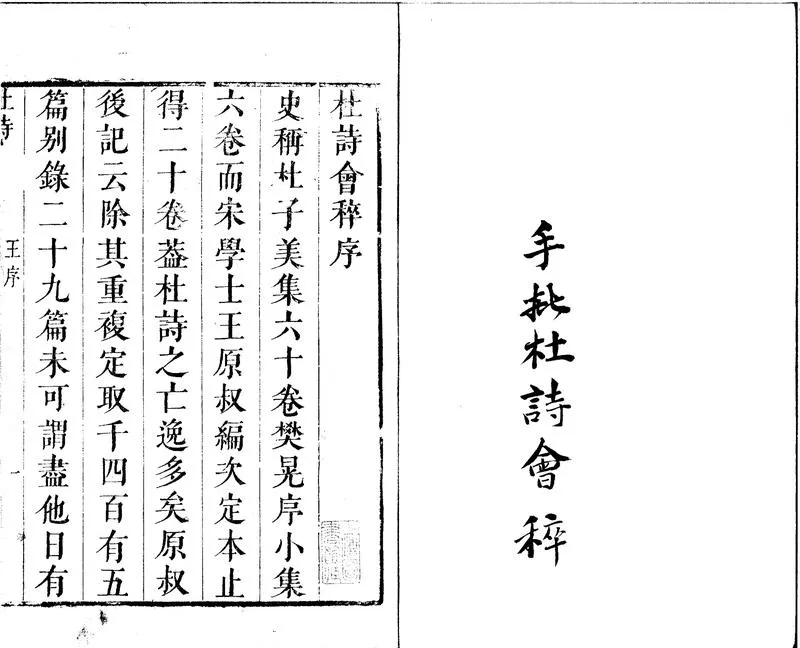 手批杜詩會稡
杜詩會稡序
史稱杜子美集六十卷樊晃序小集
六卷而宋學士王原叔編次定本止
得二十卷葢杜詩之亡逸多矣原叔
後記云除其重複定取千四百有五
篇别錄二十九篇未可謂盡他日有
王序
一